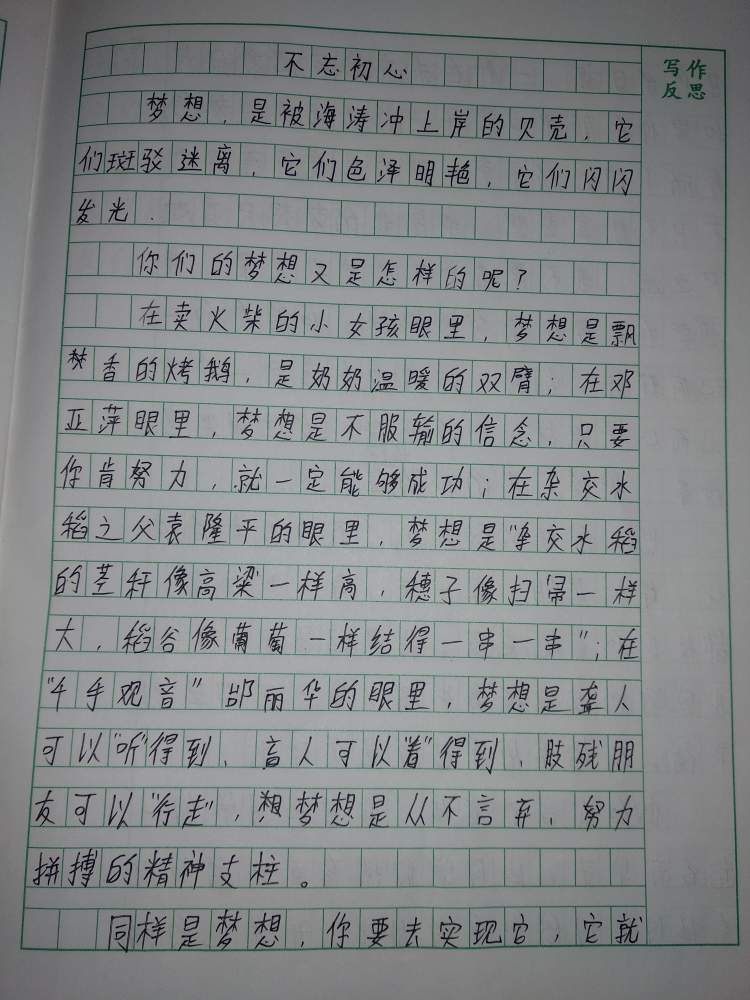 不忘初心
写作
反思
梦想，是被海涛冲上岸的贝壳，它
们斑驳迷离，它们色泽明艳，它们闪闪
发光．
你们的梦想又是怎样的呢？
在卖火柴的小女孩眼里，梦想是飘
香的烤鹅，是奶奶温暖的双臂；在邓
亚萍眼里，梦想是不服输的信念，只要
你肯努力，就一定能够成功；在杂交水
稻之父袁隆平的眼里，梦想是“杂交水稻
的茎秆像高粱一样高，穗子像扫帚一样
大，稻谷像葡萄一样结得一串一串”；在
“千手观音”邰丽华的眼里，梦想是聋人
可以“听”得到，盲人可以“看”得到，肢残朋
友可以“行走”，梦想是从不言弃，努力
拼搏的精神支柱。
同样是梦想，你要去实现它，它就